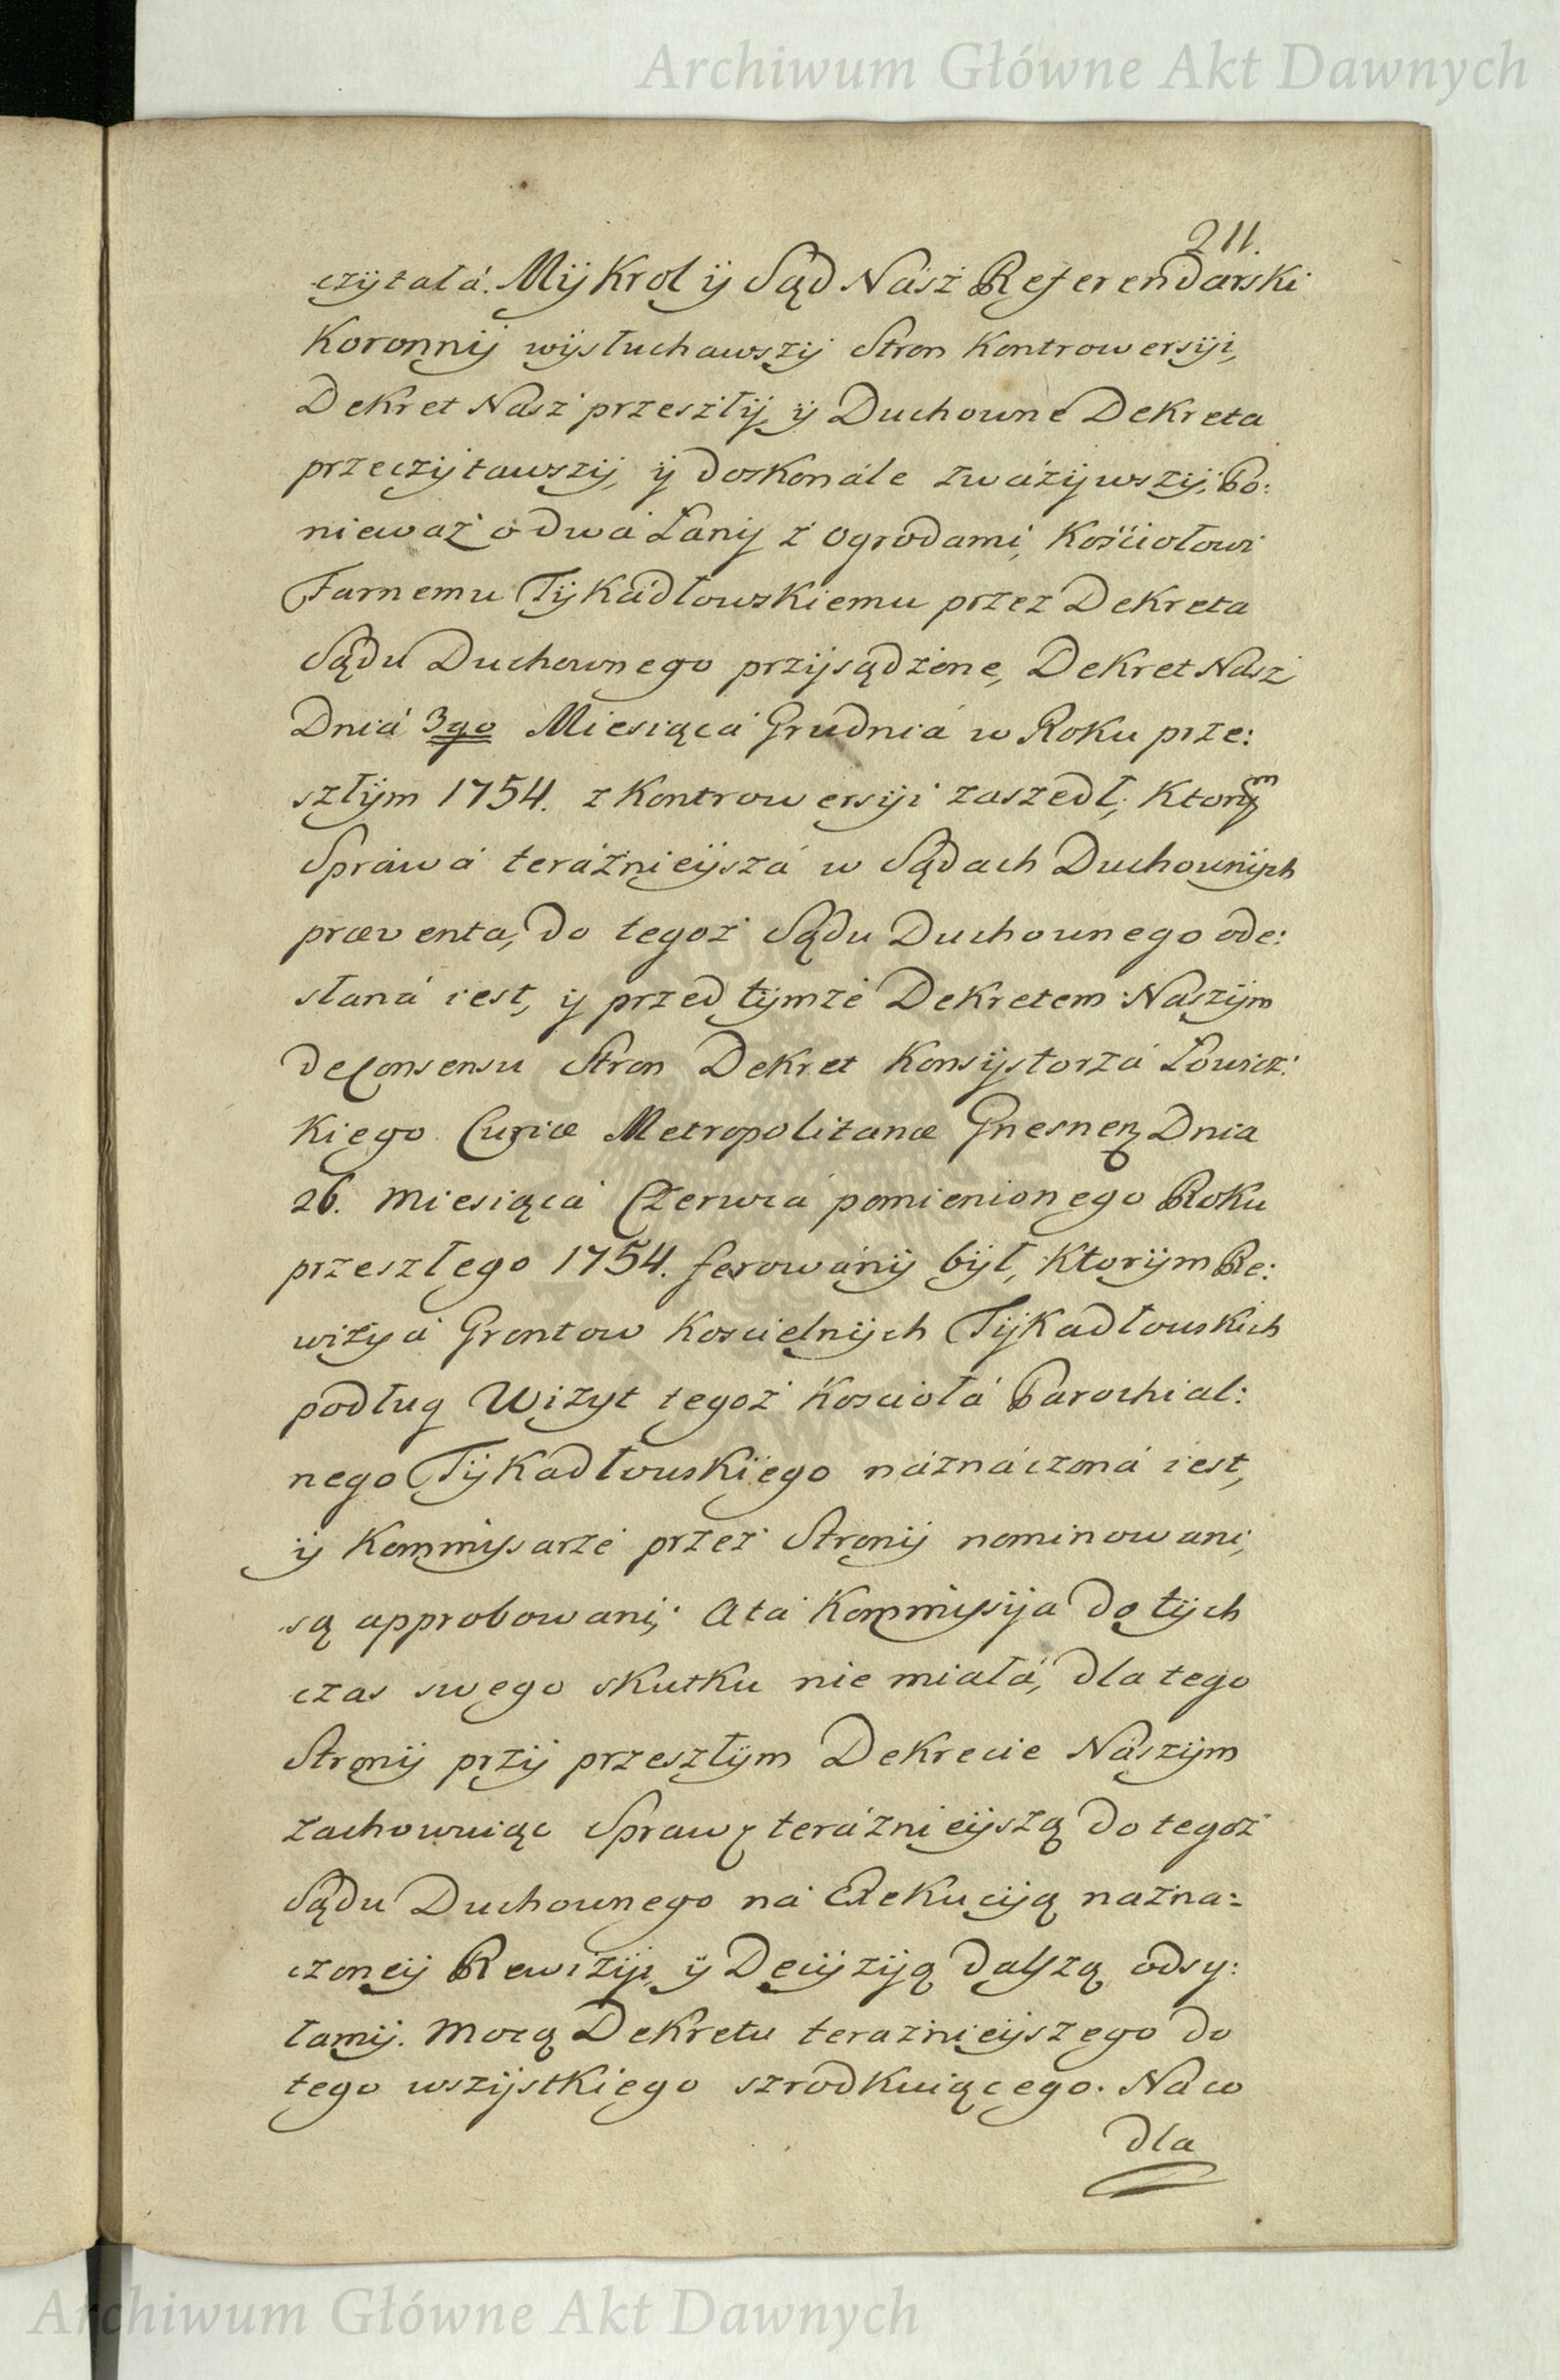 Archiwum Główne Akt Dawnych
211.
czytałá. My Krol y Sąd Nász Referendarski
Koronny wysłuchawszy Stron Kontrowersyi,
Dekret Nasz przeszły, y Duchowne Dekreta
przeczytawszy, y doskonále zwáżywszy, Po:
nieważ o dwá Łany z ogrodami, Kościołowi
Farnemu Tykádłowskiemu przez Dekreta
Sądu Duchownego przysądzone, Dekret Nasz
Dniá 3go Miesiącá Grudniá w Roku prze:
szłym 1754. z Kontrowersyi zaszedł, Ktorym
Spráwá teráźnieyszá w Sądach Duchownych
præventa, do tegoż Sądu Duchownego ode:
słaná iest, y przed tymże Dekretem Naszym
de Consensu Stron Dekret Konsystorzá Łowicz:
kiego Curiæ Metropolitanæ Gnesnen Dnia
26. Miesiącá Czerwcá pomienionego Roku
przeszłego 1754. ferowány był, Ktorym Re:
wizyá Grontow Koscielnych Tykadłowskich
podług Wizyt tegoż Kosciołá Parochial:
nego Tykadłowskiego náznáczoná iest,
y Kommissarze przez Strony nominowani,
są approbowani; A tá Kommissyja do tych
czas swego skutku nie miałá, dla tego
Strony przy przeszłym Dekrecie Nászym
záchowuiąc Sprawę teráźnieyszą do tegoż
Sądu Duchownego ná Exekucyją nazna:
czoney Rewizyi, y Decyzyją dalszą odsy:
łamy. Mocą Dekretu teraźnieyszego do
tego wszystkiego szrodkuiącego. Na co
dla
Archiwum Główne Akt Dawnych